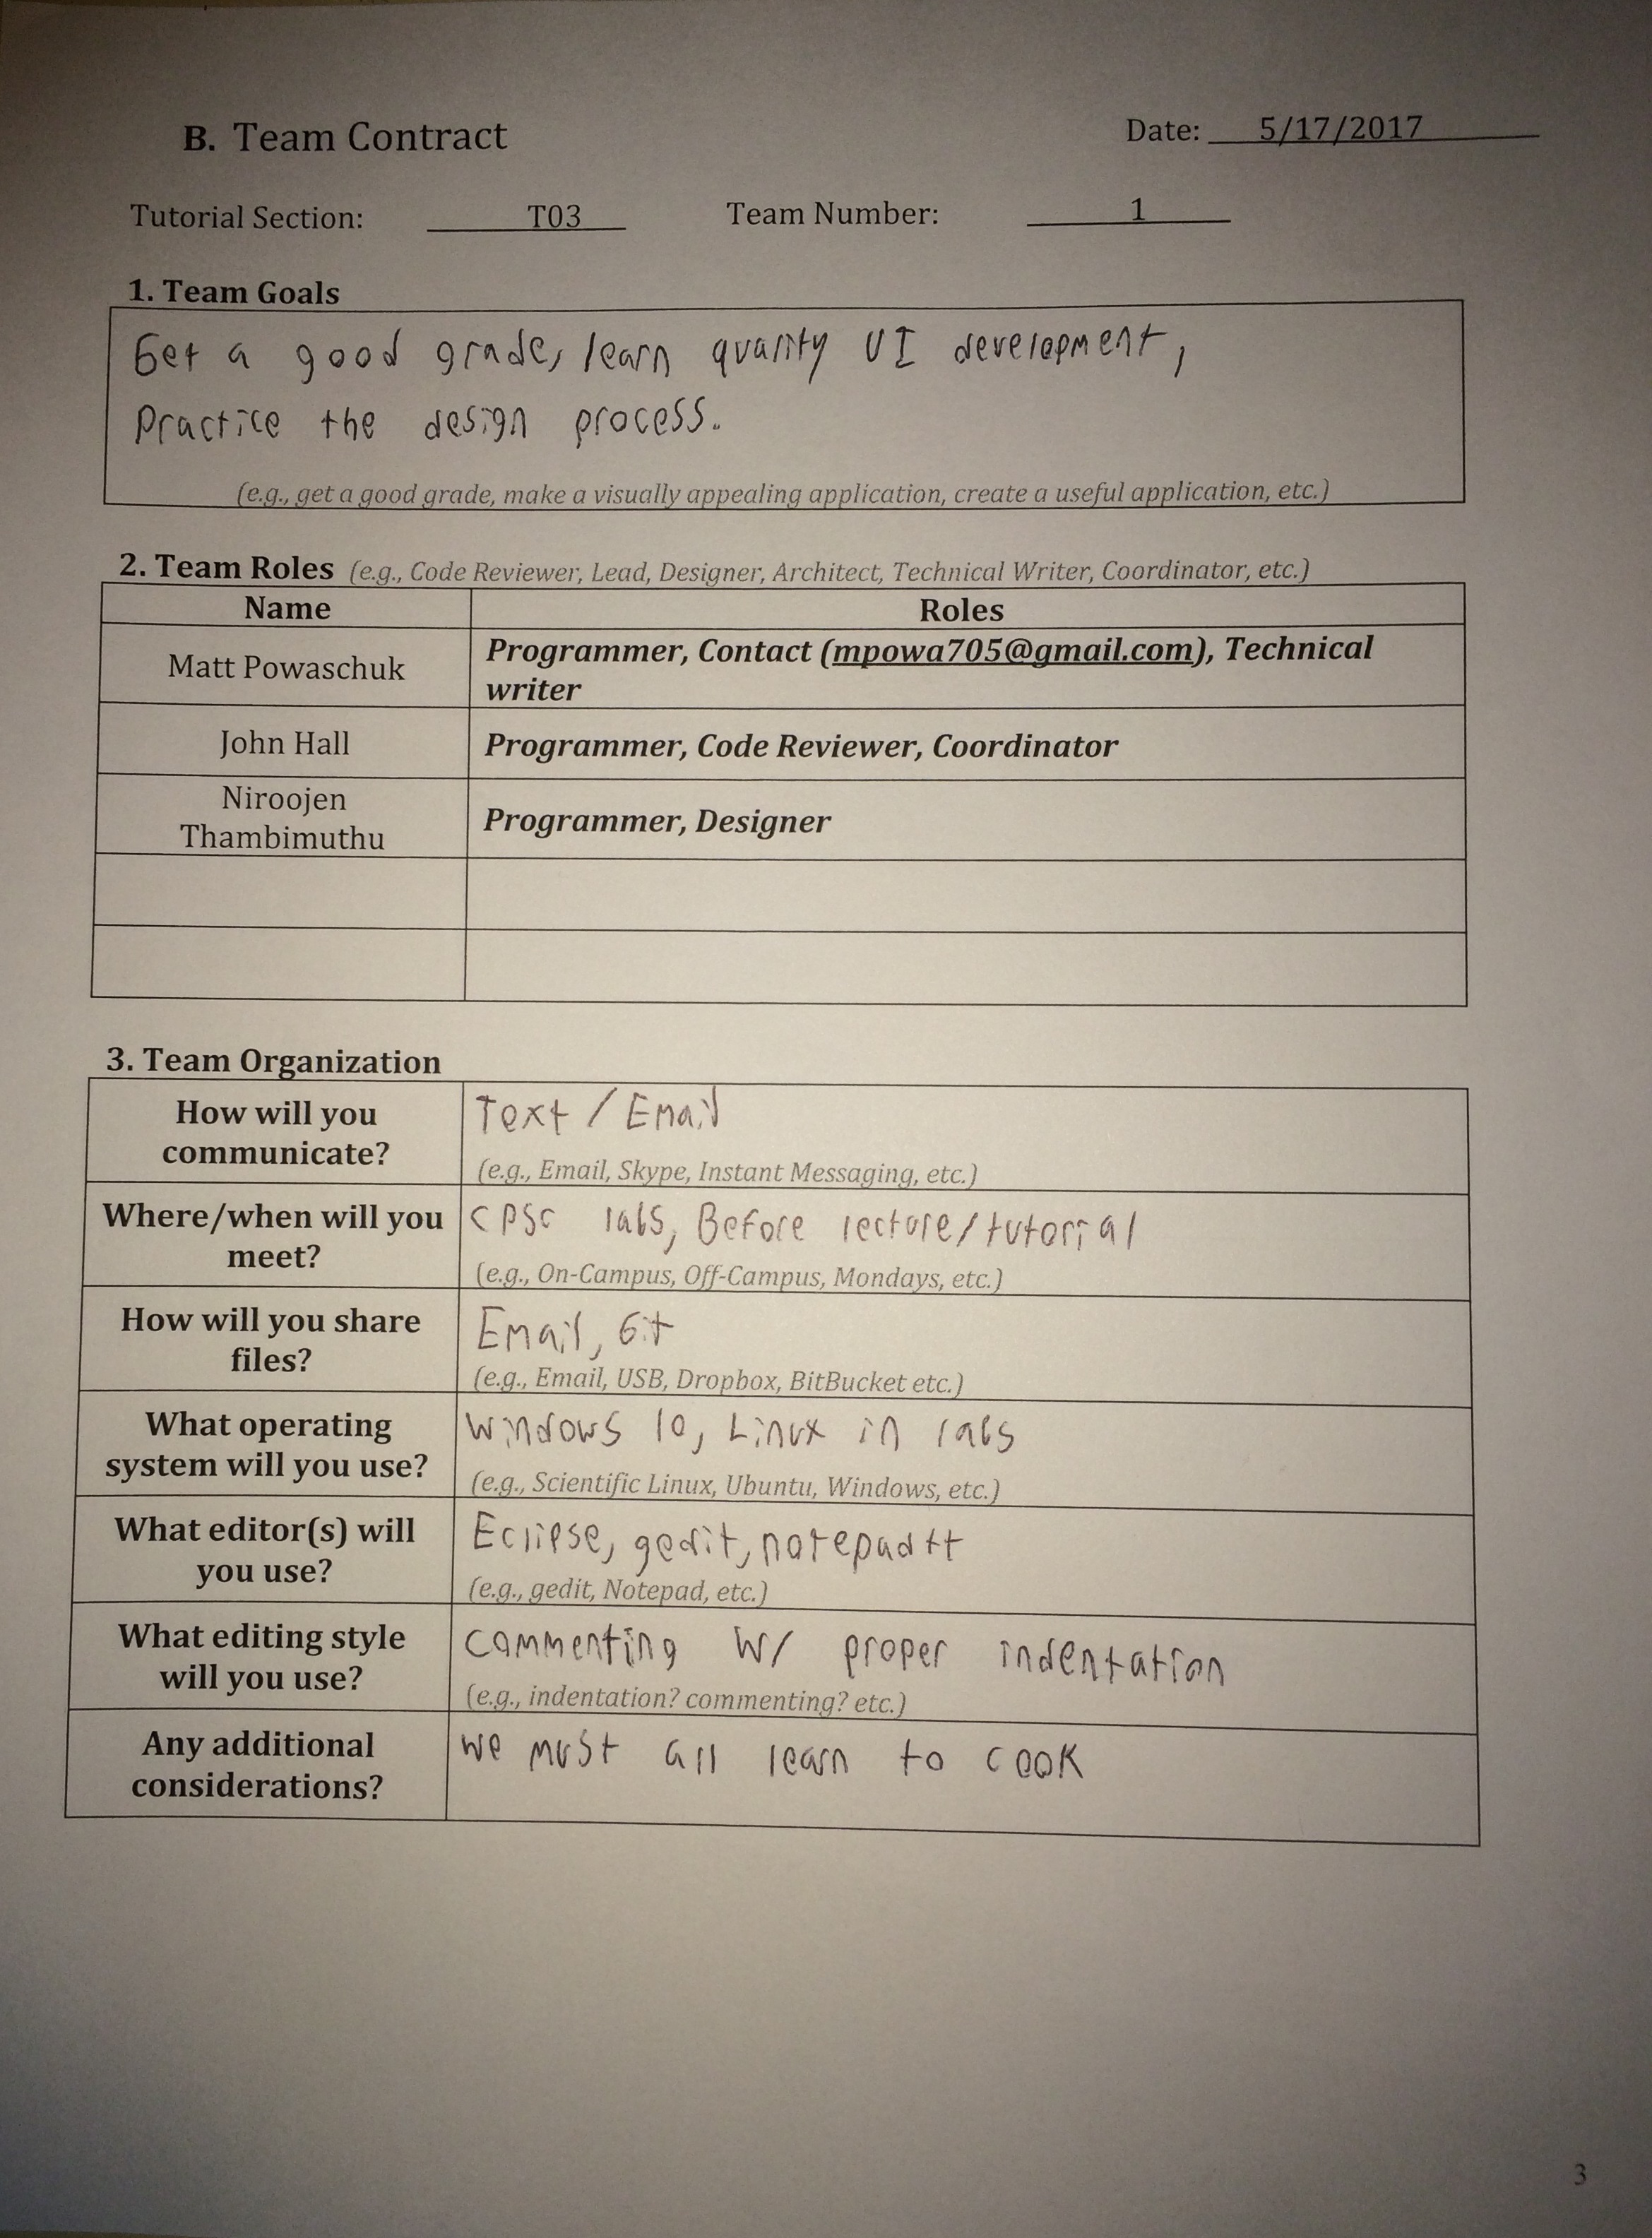 B. Team Contract
Date: 5/17/2017
Tutorial Section: T03 Team Number: 1
1. Team Goals
Get a good grade, learn quality UI development,
Practice the design process.
(e.g., get a good grade, make a visually appealing application, create a useful application, etc.)
2. Team Roles (e.g., Code Reviewer, Lead, Designer, Architect, Technical Writer, Coordinator, etc.)
Name Roles
Matt Powaschuk
Programmer, Contact (mpowa705@gmail.com), Technical
writer
John Hall
Programmer, Code Reviewer, Coordinator
Niroojen
Thambimuthu
Programmer, Designer
3. Team Organization
How will you
communicate?
Text / Email
(e.g., Email, Skype, Instant Messaging, etc.)
Where/when will you
meet?
CPSC labs, Before lecture/tutorial
(e.g., On-Campus, Off-Campus, Mondays, etc.)
How will you share
files?
Email, Git
(e.g., Email, USB, Dropbox, BitBucket etc.)
What operating
system will you use?
Windows 10, Linux in labs
(e.g., Scientific Linux, Ubuntu, Windows, etc.)
What editor(s) will
you use?
Eclipse, gedit, notepad++
(e.g., gedit, Notepad, etc.)
What editing style
will you use?
Commenting w/ proper indentation
(e.g., indentation? commenting? etc.)
Any additional
considerations?
We must all learn to cook
3